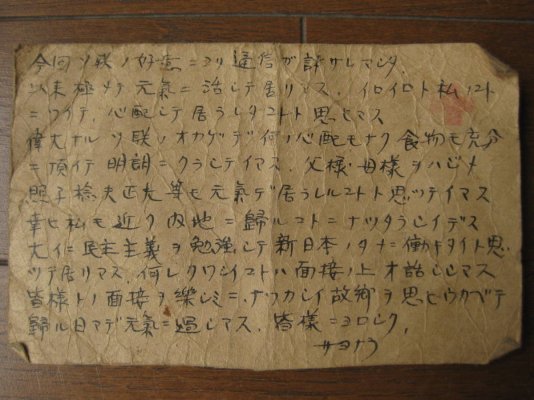 今回ソ联ノ好意ニヨリ通信ガ許サレマシタ.
以来極メテ元氣ニ活シテ居リマス. イロイロト私ノコト
ニツイテ. 心配シテ居ラレタコトト思ヒマス
偉大ナルソ联ノオカゲデ何ノ心配モナク食物モ充分
ニ頂イテ明朗ニクラシテイマス. 父様.母様ヲハジメ
照子 捻夫 正大等モ元氣デ居ラレルコトト思ツテイマス
幸ヒ私モ近ク内地ニ歸ルコトニナツタラシイデス
大イニ民主主義ヲ勉強シテ新日本ノタメニ働キタイト思
ツテ居リマス. 何レクワシイコトハ面接ノ上オ話シシマス
皆様トノ面接ヲ樂シミニ. ナツカシイ故鄉ヲ思ヒウカベテ
歸ル日マデ元氣ニ過シマス. 皆様ニヨロシク,
サヨナラ